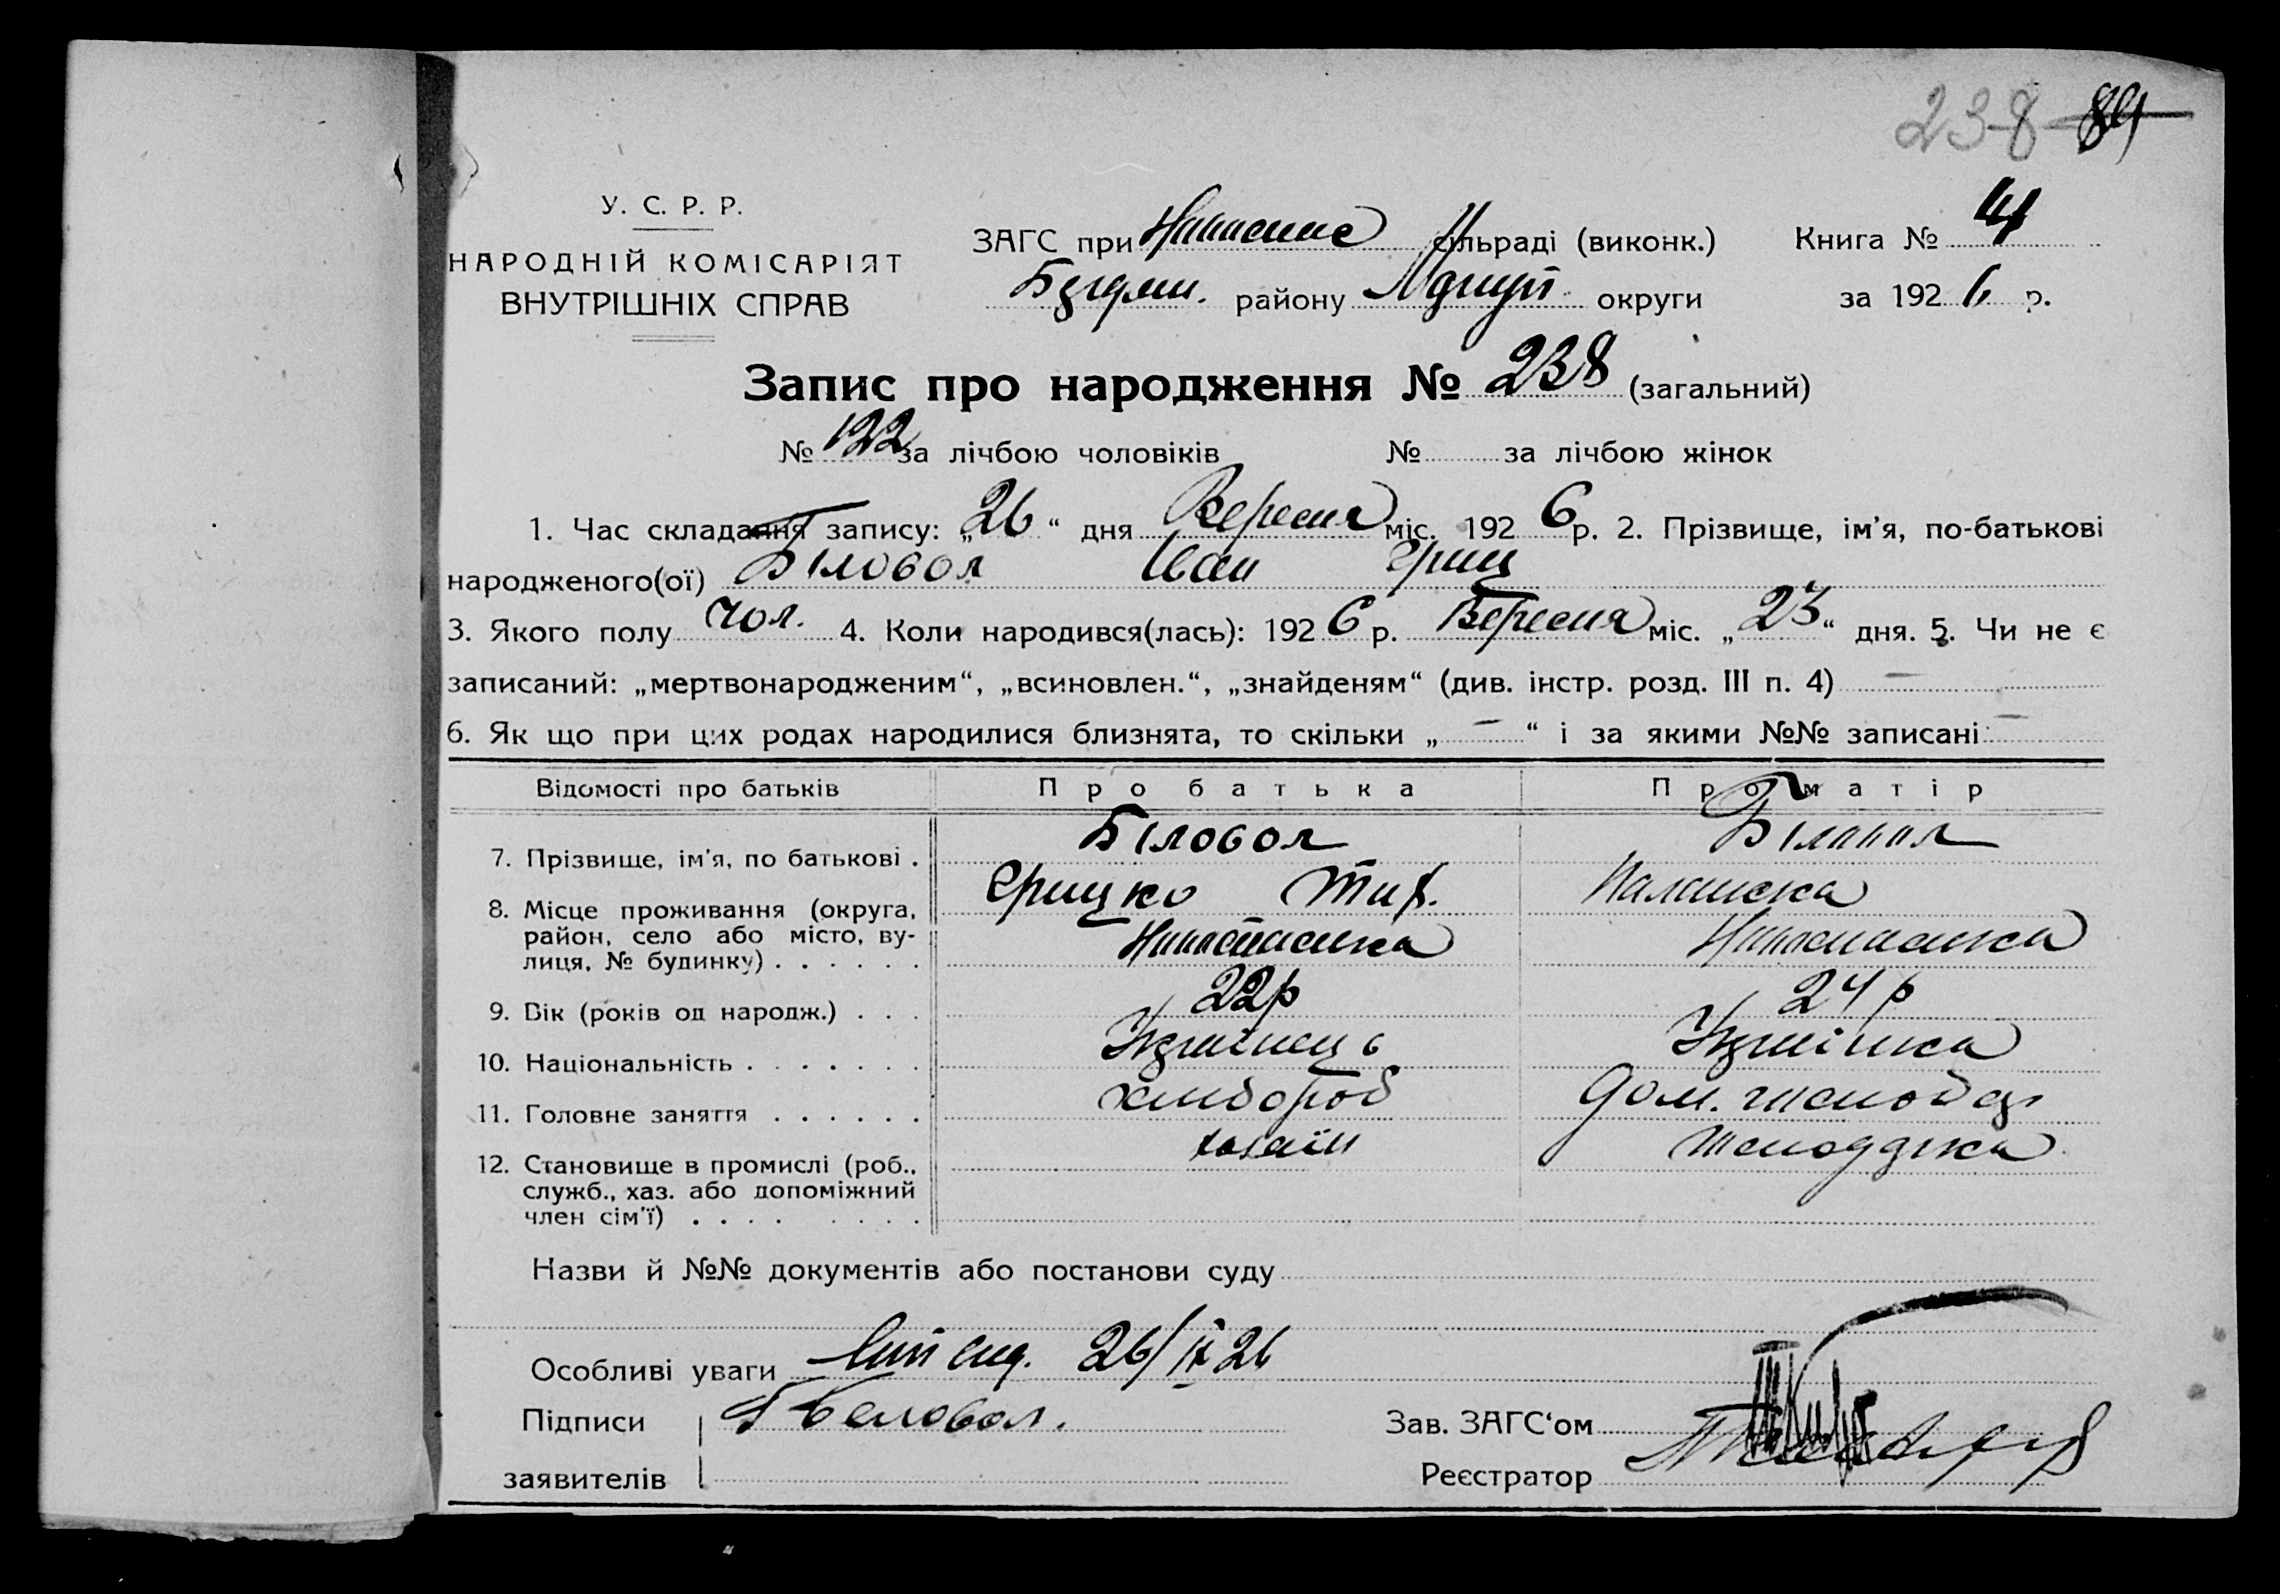 238 89
У. С. Р. Р.
НАРОДНІЙ КОМІСАРІЯТ
ВНУТРІШНІХ СПРАВ
ЗАГС при сільраді (виконк.)
району округи
Книга № 4
за 1926 р.
Запис про народження № 238 (загальний)
№ 122 за лічбою чоловіків № за лічбою жінок
1. Час складання запису: „26“ дня Вересня міс. 1926 р. 2. Прізвище, ім'я, по-батькові
народженого(ої) Біловол Іван Гриц
3. Якого полу чол. 4. Коли народився(лась): 1926 р. Вересня міс. „23“ дня. 5. Чи не є
записаний: „мертвонародженим“, „всиновлен.“, „знайденям“ (див. інстр. розд. III п. 4) —
6. Як що при цих родах народилися близнята, то скільки „—“ і за якими №№ записані: —
Відомості про батьків Про батька Про матір
7. Прізвище, ім'я, по батькові . Біловол Біловол
Грицко Тиф. Палашка
8. Місце проживання (округа,
район, село або місто, ву-
лиця, № будинку) . . . . . .
9. Вік (років од народж.) . . . 22р 24р
10. Національність . . . . . . . Українець Українка
11. Головне заняття . . . . . . хлибороб
12. Становище в промислі (роб.,
служб., хаз. або допоміжний
член сім'ї) . . . . . . . . хазаїн
Назви й №№ документів або постанови суду
Особливі уваги 26/IX 26
Підписи Г Беловол.
заявителів
Зав. ЗАГС'ом
Реєстратор